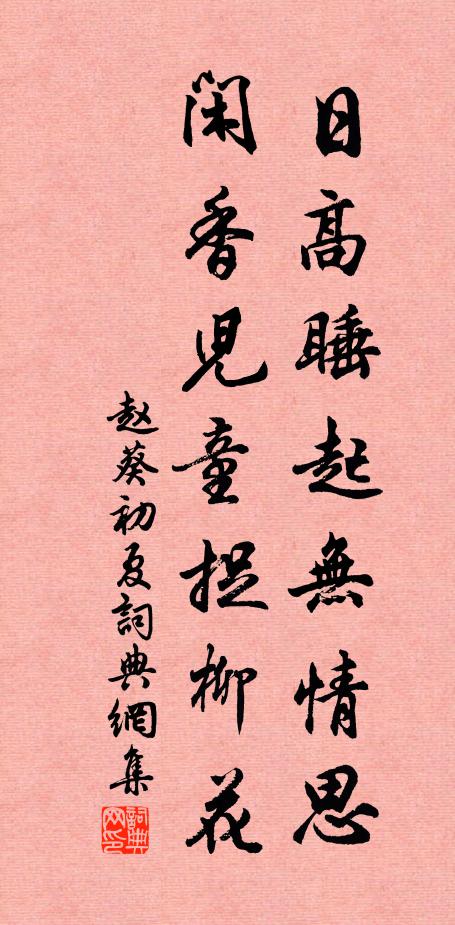 日高睡起無情思
閑看兒童捉柳花
赵葵初夏詞典網集
詞典
网印